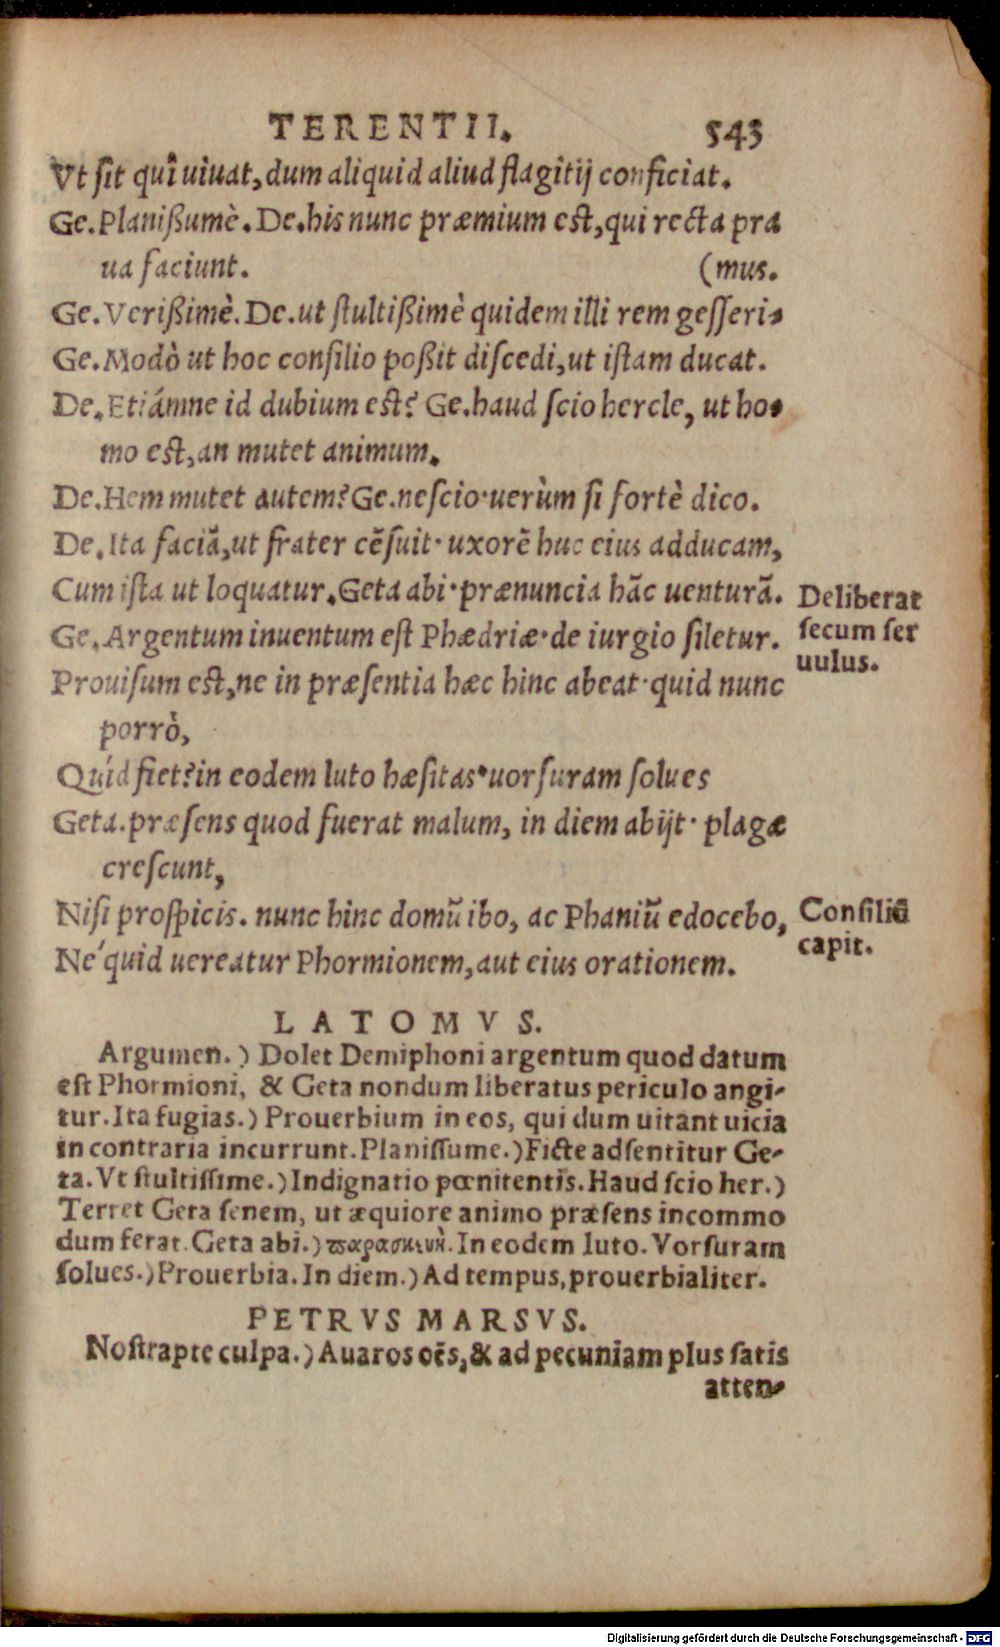 TERENTII. 543
Vt sit quî uiuat, dum aliquid aliud flagitij conficiat.
Ge. Planißumè. De. his nunc præmium est, qui recta pra
ua faciunt. (mus.
Ge. Verißimè. De. ut stultißimè quidem illi rem gesseri-
Ge. Modò ut hoc consilio poßit discedi, ut istam ducat.
De. Etiámne id dubium est? Ge. haud scio hercle, ut ho-
mo est, an mutet animum.
De. Hem mutet autem? Ge. nescio· uerùm si fortè dico.
De. Ita faciã, ut frater cẽsuit· uxorẽ huc eius adducam,
Cum ista ut loquatur. Geta abi· prænuncia hãc uenturã.
Deliberat
secum ser
uulus.
Ge. Argentum inuentum est Phædriæ· de iurgio siletur.
Prouisum est, ne in præsentia hæc hinc abeat· quid nunc
porrò,
Quíd fiet? in eodem luto hæsitas· uorsuram solues
Geta. præsens quod fuerat malum, in diem abijt· plagæ
crescunt,
Nisi prospicis. nunc hinc domũ ibo, ac Phaniũ edocebo,
Consiliũ
capit.
Ne´quid uereatur Phormionem, aut eius orationem.
LATOMVS.
Argumen.) Dolet Demiphoni argentum quod datum
est Phormioni, & Geta nondum liberatus periculo angi-
tur. Ita fugias.) Prouerbium in eos, qui dum uitant uicia
in contraria incurrunt. Planissume.) Ficte adsentitur Ge-
ta. Vt stultissime.) Indignatio pœnitentis. Haud scio her.)
Terret Geta senem, ut æquiore animo præsens incommo
dum ferat. Geta abi.) παρασκευή. In eodem luto. Vorsuram
solues.) Prouerbia. In diem.) Ad tempus, prouerbialiter.
PETRVS MARSVS.
Nostrapte culpa.) Auaros oẽs, & ad pecuniam plus satis
atten-
Digitalisierung gefördert durch die Deutsche Forschungsgemeinschaft - DFG